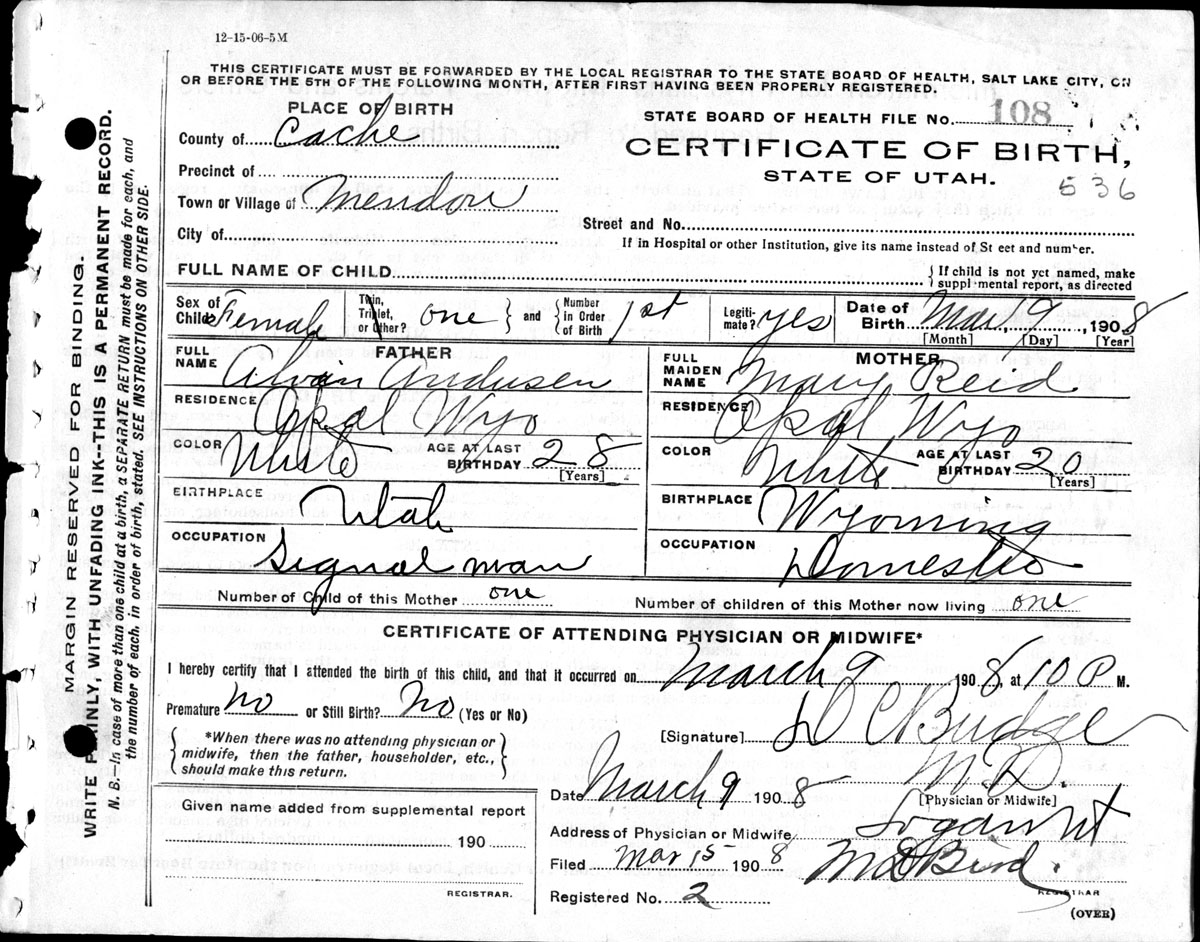 12-15-06-5M
THIS CERTIFICATE MUST BE FORWARDED BY THE LOCAL REGISTRAR TO THE STATE BOARD OF HEALTH, SALT LAKE CITY, ON
OR BEFORE THE 5TH OF THE FOLLOWING MONTH, AFTER FIRST HAVING BEEN PROPERLY REGISTERED.
PLACE OF BIRTH
County of Cache
Precinct of
Town or Village of Mendon
City of
STATE BOARD OF HEALTH FILE No. 108
CERTIFICATE OF BIRTH,
STATE OF UTAH.
536
Street and No.
If in Hospital or other Institution, give its name instead of St eet and number.
FULL NAME OF CHILD
If child is not yet named, make
suppl mental report, as directed
Sex of Child Female
Twin, Triplet, or Other? one
and
Number in Order of Birth 1st
Legiti-mate? yes
Date of Birth Mar 9 1908
[Month] [Day] [Year]
FATHER
FULL NAME Alvin Andersen
RESIDENCE Opal Wyo
COLOR White
AGE AT LAST BIRTHDAY 28
[Years]
BIRTHPLACE Utah
OCCUPATION Signal man
MOTHER
FULL MAIDEN NAME Mary Reid
RESIDENCE Opal Wyo
COLOR White
AGE AT LAST BIRTHDAY 20
[Years]
BIRTHPLACE Wyoming
OCCUPATION Domestic
Number of Child of this Mother one
Number of children of this Mother now living one
CERTIFICATE OF ATTENDING PHYSICIAN OR MIDWIFE*
I hereby certify that I attended the birth of this child, and that it occurred on March 9 1908, at 10 P M.
Premature No or Still Birth? No (Yes or No)
*When there was no attending physician or
midwife, then the father, householder, etc.,
should make this return.
[Signature] D C Budge
M.D.
[Physician or Midwife]
Date March 9 1908
Address of Physician or Midwife Logan Ut
Filed Mar 15 1908
Bird
REGISTRAR
Registered No. 2
(OVER)
Given name added from supplemental report
190
REGISTRAR.
MARGIN RESERVED FOR BINDING.
WRITE PLAINLY, WITH UNFADING INK--THIS IS A PERMANENT RECORD.
N. B.—In case of more than one child at a birth, a SEPARATE RETURN must be made for each, and
the number of each, in order of birth, stated. SEE INSTRUCTIONS ON OTHER SIDE.